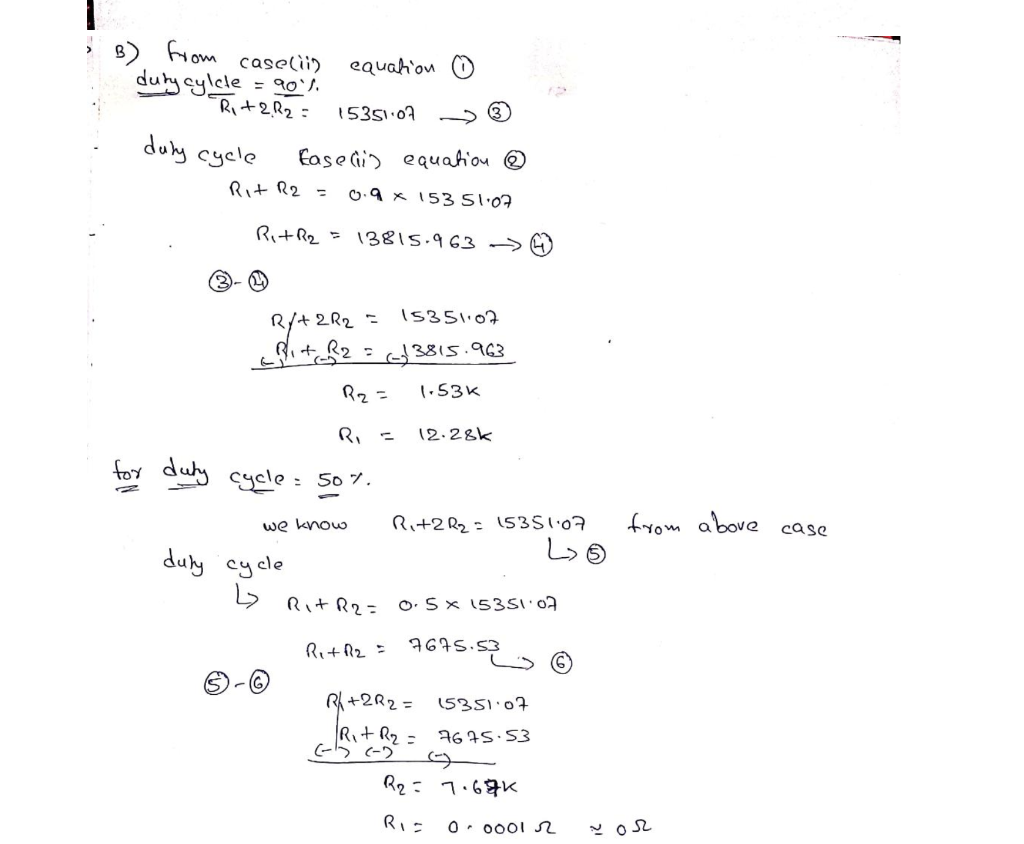 B) from case(ii) equation ①
duty cylcle = 90%.
R1+2R2 = 15351.07 → ③
duty cycle Case(ii) equation ②
R1+ R2 = 0.9 × 15351.07
R1+R2 = 13815.963 → ④
③-④
R1+2R2 = 15351.07
(-)R1+(-)R2 = (-)13815.963
R2 = 1.53K
R1 = 12.28K
for duty cycle = 50%.
we know R1+2R2 = 15351.07 from above case
↳ ⑤
duty cycle
↳ R1+R2 = 0.5 × 15351.07
R1+R2 = 7675.53 ↳ ⑥
⑤-⑥
R1+2R2 = 15351.07
R1+R2 = 7675.53
(-) (-) (-)
R2 = 7.67K
R1 = 0.0001 Ω ≈ 0Ω